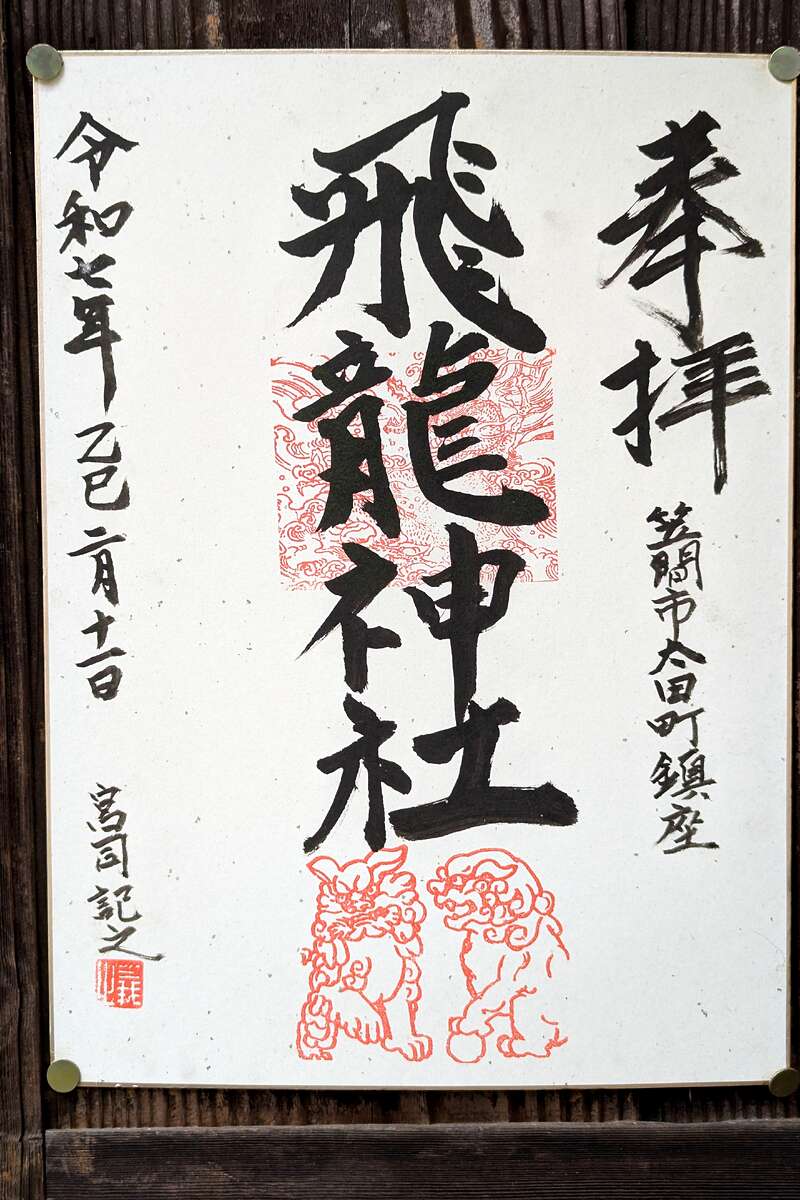 奉拝
笠間市大田町鎮座
飛龍神社
令和七年乙巳二月十一日
宮司記之